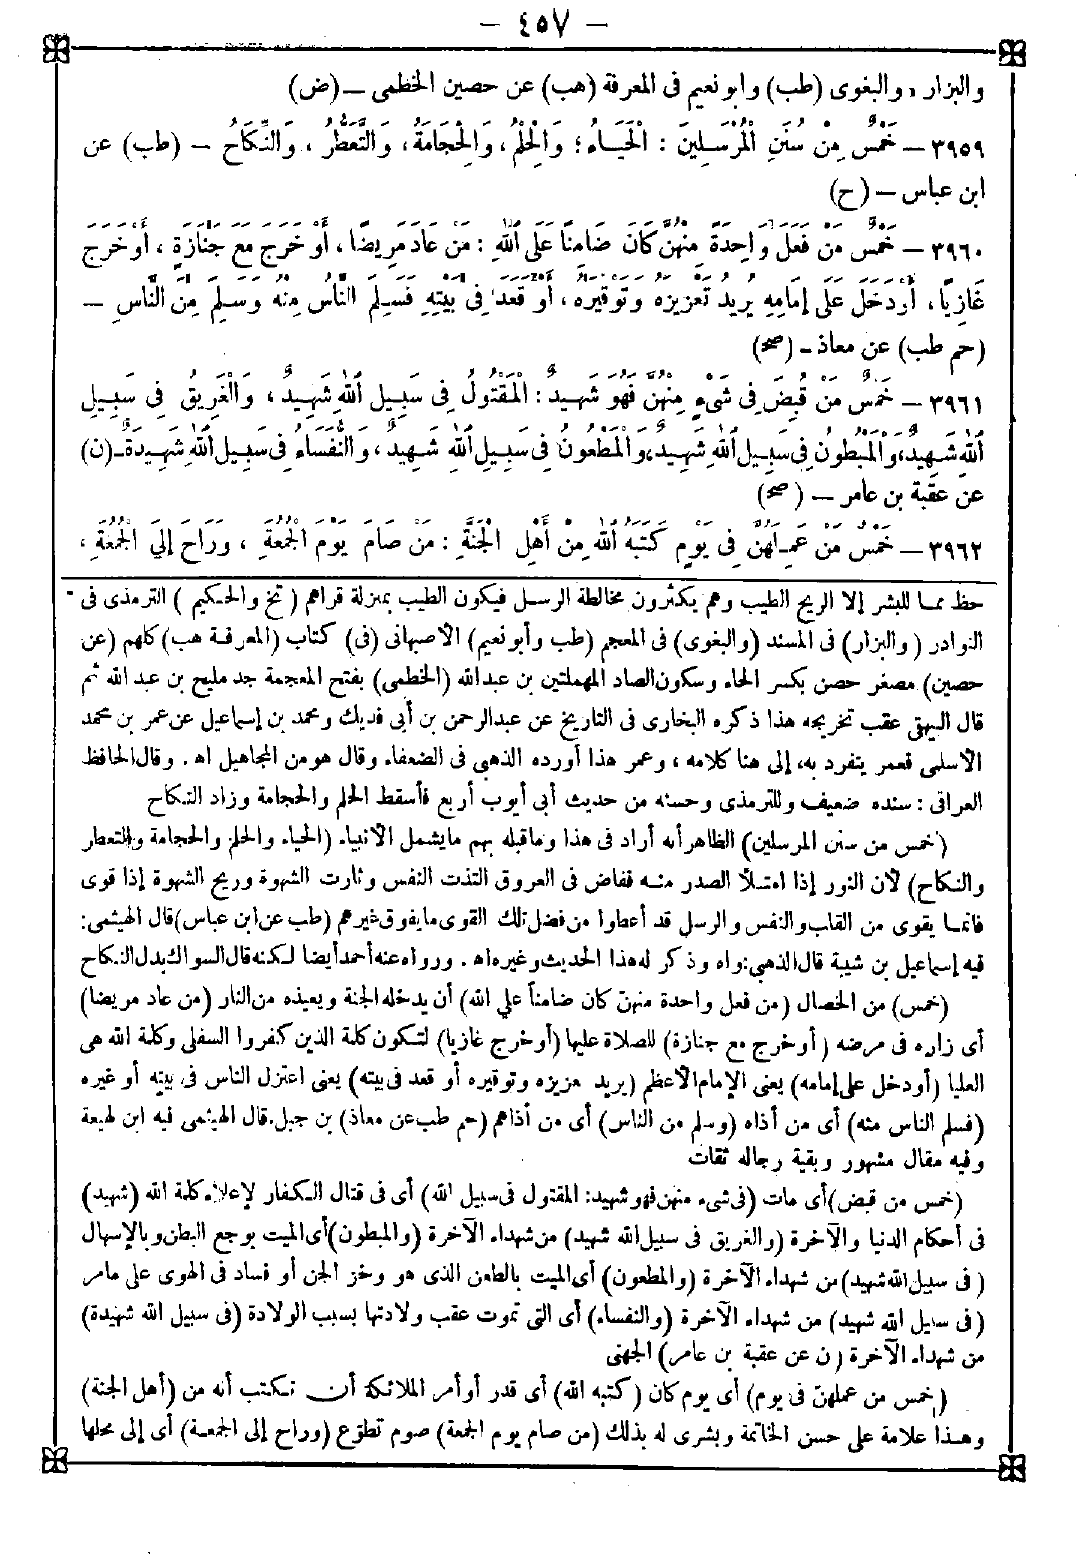 — ٤٥٧ —
والبزار ، والبغوى (طب) وأبو نعيم فى المعرفة (هب) عن حصين الخطمى — (ض)
٣٩٥٩ — خَمْسٌ مِنْ سُنَنِ الْمُرْسَلِينَ : الْحَيَاءُ ؛ وَالْحِلْمُ ، وَالْحِجَامَةُ ، وَالتَّعَطُّرُ ، وَالنِّكَاحُ — (طب) عن
ابن عباس — (ح)
٣٩٦٠ — خَمْسٌ مَنْ فَعَلَ وَاحِدَةً مِنْهُنَّ كَانَ ضَامِنًا عَلَى اللهِ : مَنْ عَادَ مَرِيضًا ، أَوْ خَرَجَ مَعَ جَنَازَةٍ ، أَوْ خَرَجَ
غَازِيًا ، أَوْ دَخَلَ عَلَى إِمَامِهِ يُرِيدُ تَعْزِيزَهُ وَتَوْقِيرَهُ ، أَوْ قَعَدَ فِى بَيْتِهِ فَسَلِمَ النَّاسُ مِنْهُ وَسَلِمَ مِنَ النَّاسِ —
(حم طب) عن معاذ — (صح)
٣٩٦١ — خَمْسٌ مَنْ قُبِضَ فِى شَىْءٍ مِنْهُنَّ فَهُوَ شَهِيدٌ : الْمَقْتُولُ فِى سَبِيلِ اللهِ شَهِيدٌ ، وَالْغَرِيقُ فِى سَبِيلِ
اللهِ شَهِيدٌ ، وَالْمَبْطُونُ فِى سَبِيلِ اللهِ شَهِيدٌ ، وَالْمَطْعُونُ فِى سَبِيلِ اللهِ شَهِيدٌ ، وَالنُّفَسَاءُ فِى سَبِيلِ اللهِ شَهِيدَةٌ — (ن)
عن عقبة بن عامر — (صح)
٣٩٦٢ — خَمْسٌ مَنْ عَمِلَهُنَّ فِى يَوْمٍ كَتَبَهُ اللهُ مِنْ أَهْلِ الْجَنَّةِ : مَنْ صَامَ يَوْمَ الْجُمُعَةِ ، وَرَاحَ إِلَى الْجُمُعَةِ ،
حظ مما للبشر إلا الريح الطيب وهم يكثرون مخالطة الرسل فيكون الطيب بمنزلة قراهم (تخ والحكيم) الترمذى فى
النوادر (والبزار) فى المسند (والبغوى) فى المعجم (طب وأبو نعيم) الأصبهانى (فى) كتاب (المعرفة هب) كلهم (عن
حصين) مصغر حصن بكسر الحاء وسكون الصاد المهملتين بن عبد الله (الخطمى) بفتح المعجمة جد مليح بن عبد الله ثم
قال البيهقى عقب تخريجه هذا ذكره البخارى فى التاريخ عن عبد الرحمن بن أبى فديك ومحمد بن إسماعيل عن عمر بن محمد
الأسلمى فعمر يتفرد به ، إلى هنا كلامه ، وعمر هذا أورده الذهبى فى الضعفاء وقال هو من المجاهيل اه . وقال الحافظ
العراقى : سنده ضعيف وللترمذى وحسنه من حديث أبى أيوب أربع فأسقط الحلم والحجامة وزاد النكاح
(خمس من سنن المرسلين) الظاهر أنه أراد فى هذا وما قبله بهم ما يشمل الأنبياء (الحياء والحلم والحجامة والتعطر
والنكاح) لأن النور إذا امتلأ الصدر منه ففاض فى العروق التذت النفس وثارت الشهوة وريح الشهوة إذا قوى
فإنما يقوى من القلب والنفس والرسل قد أعطوا من فضل تلك القوى ما يفوق غيرهم (طب عن ابن عباس) قال الهيثمى :
فيه إسماعيل بن شيبة قال الذهبى : واه وذكر له هذا الحديث وغيره اه . ورواه عنه أحمد أيضا لكنه قال السواك بدل النكاح
(خمس) من الخصال (من فعل واحدة منهن كان ضامناً على الله) أن يدخله الجنة ويعيذه من النار (من عاد مريضا)
أى زاره فى مرضه (أو خرج مع جنازة) للصلاة عليها (أو خرج غازيا) لتكون كلمة الذين كفروا السفلى وكلمة الله هى
العليا (أو دخل على إمامه) يعنى الإمام الأعظم (يريد تعزيزه وتوقيره أو قعد فى بيته) يعنى اعتزل الناس فى بيته أو غيره
(فسلم الناس منه) أى من أذاه (وسلم من الناس) أى من أذاهم (حم طب عن معاذ) بن جبل . قال الهيثمى فيه ابن لهيعة
وفيه مقال مشهور وبقية رجاله ثقات
(خمس من قبض) أى مات (فى شىء منهن فهو شهيد : المقتول فى سبيل الله) أى فى قتال الكفار لإعلاء كلمة الله (شهيد)
فى أحكام الدنيا والآخرة (والغريق فى سبيل الله شهيد) من شهداء الآخرة (والمبطون) أى الميت بوجع البطن وبالإسهال
(فى سبيل الله شهيد) من شهداء الآخرة (والمطعون) أى الميت بالطعن الذى هو وخز الجن أو فساد فى الهوى على مامر
(فى سبيل الله شهيد) من شهداء الآخرة (والنفساء) أى التى تموت عقب ولادتها بسبب الولادة (فى سبيل الله شهيدة)
من شهداء الآخرة (ن عن عقبة بن عامر) الجهنى
(خمس من عملهن فى يوم) أى يوم كان (كتبه الله) أى قدر أو أمر الملائكة أن تكتب أنه من (أهل الجنة)
وهذا علامة على حسن الخاتمة وبشرى له بذلك (من صام يوم الجمعة) صوم تطوّع (وراح إلى الجمعة) أى إلى محلها